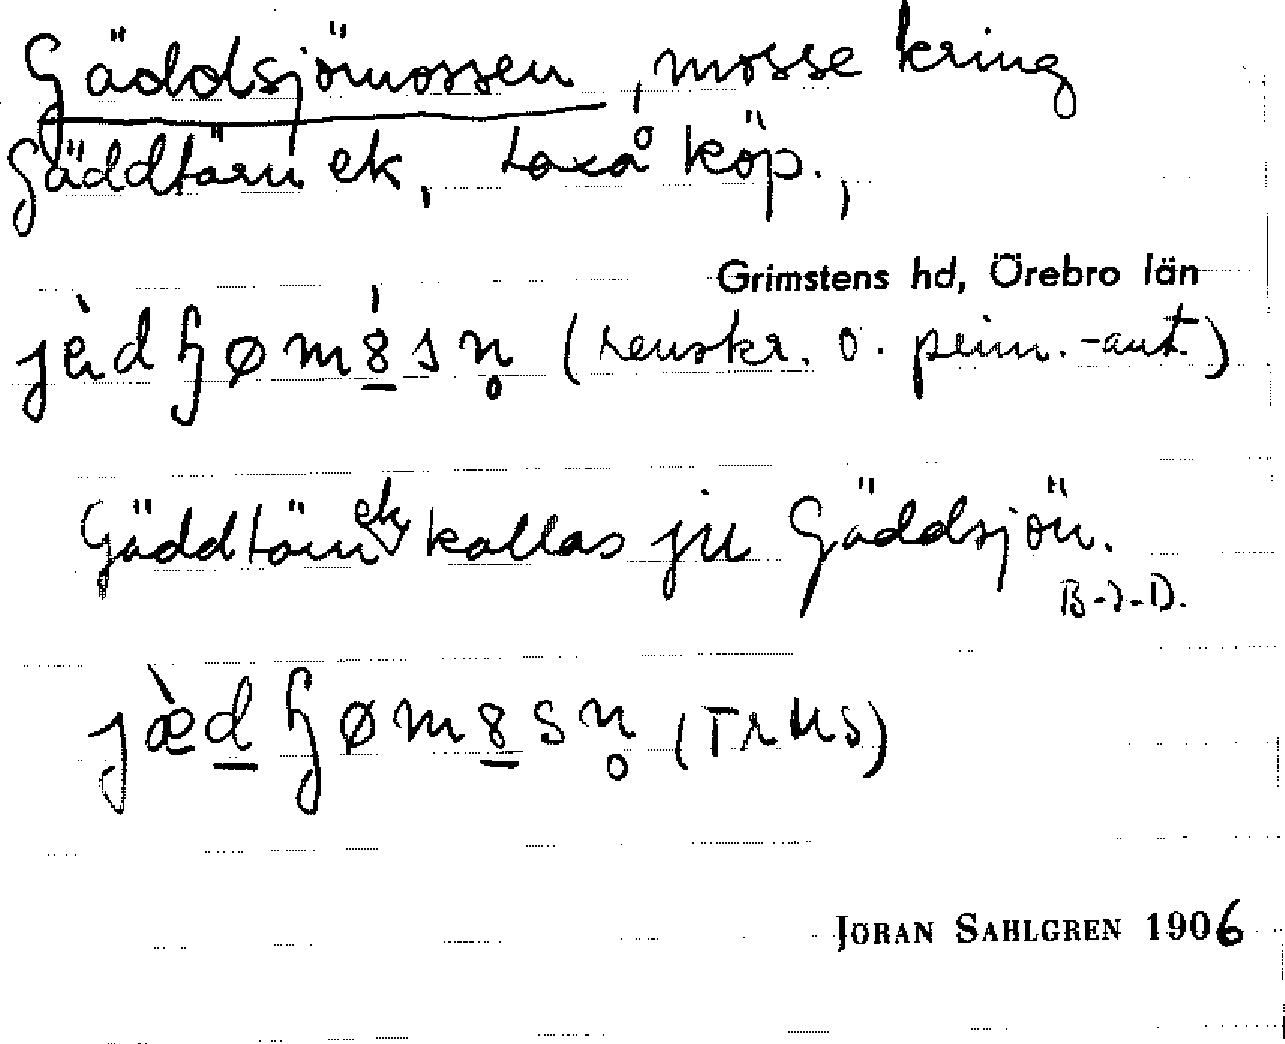 Gäddsjömossen, mosse kring
Gäddtärn ek, Laxå köp.,
Grimstens hd, Örebro län
(renskr. o. prim.-ant.)
Gäddtärn ek kallas ju Gäddsjön.
B-J-D.
JÖRAN SAHLGREN 1906